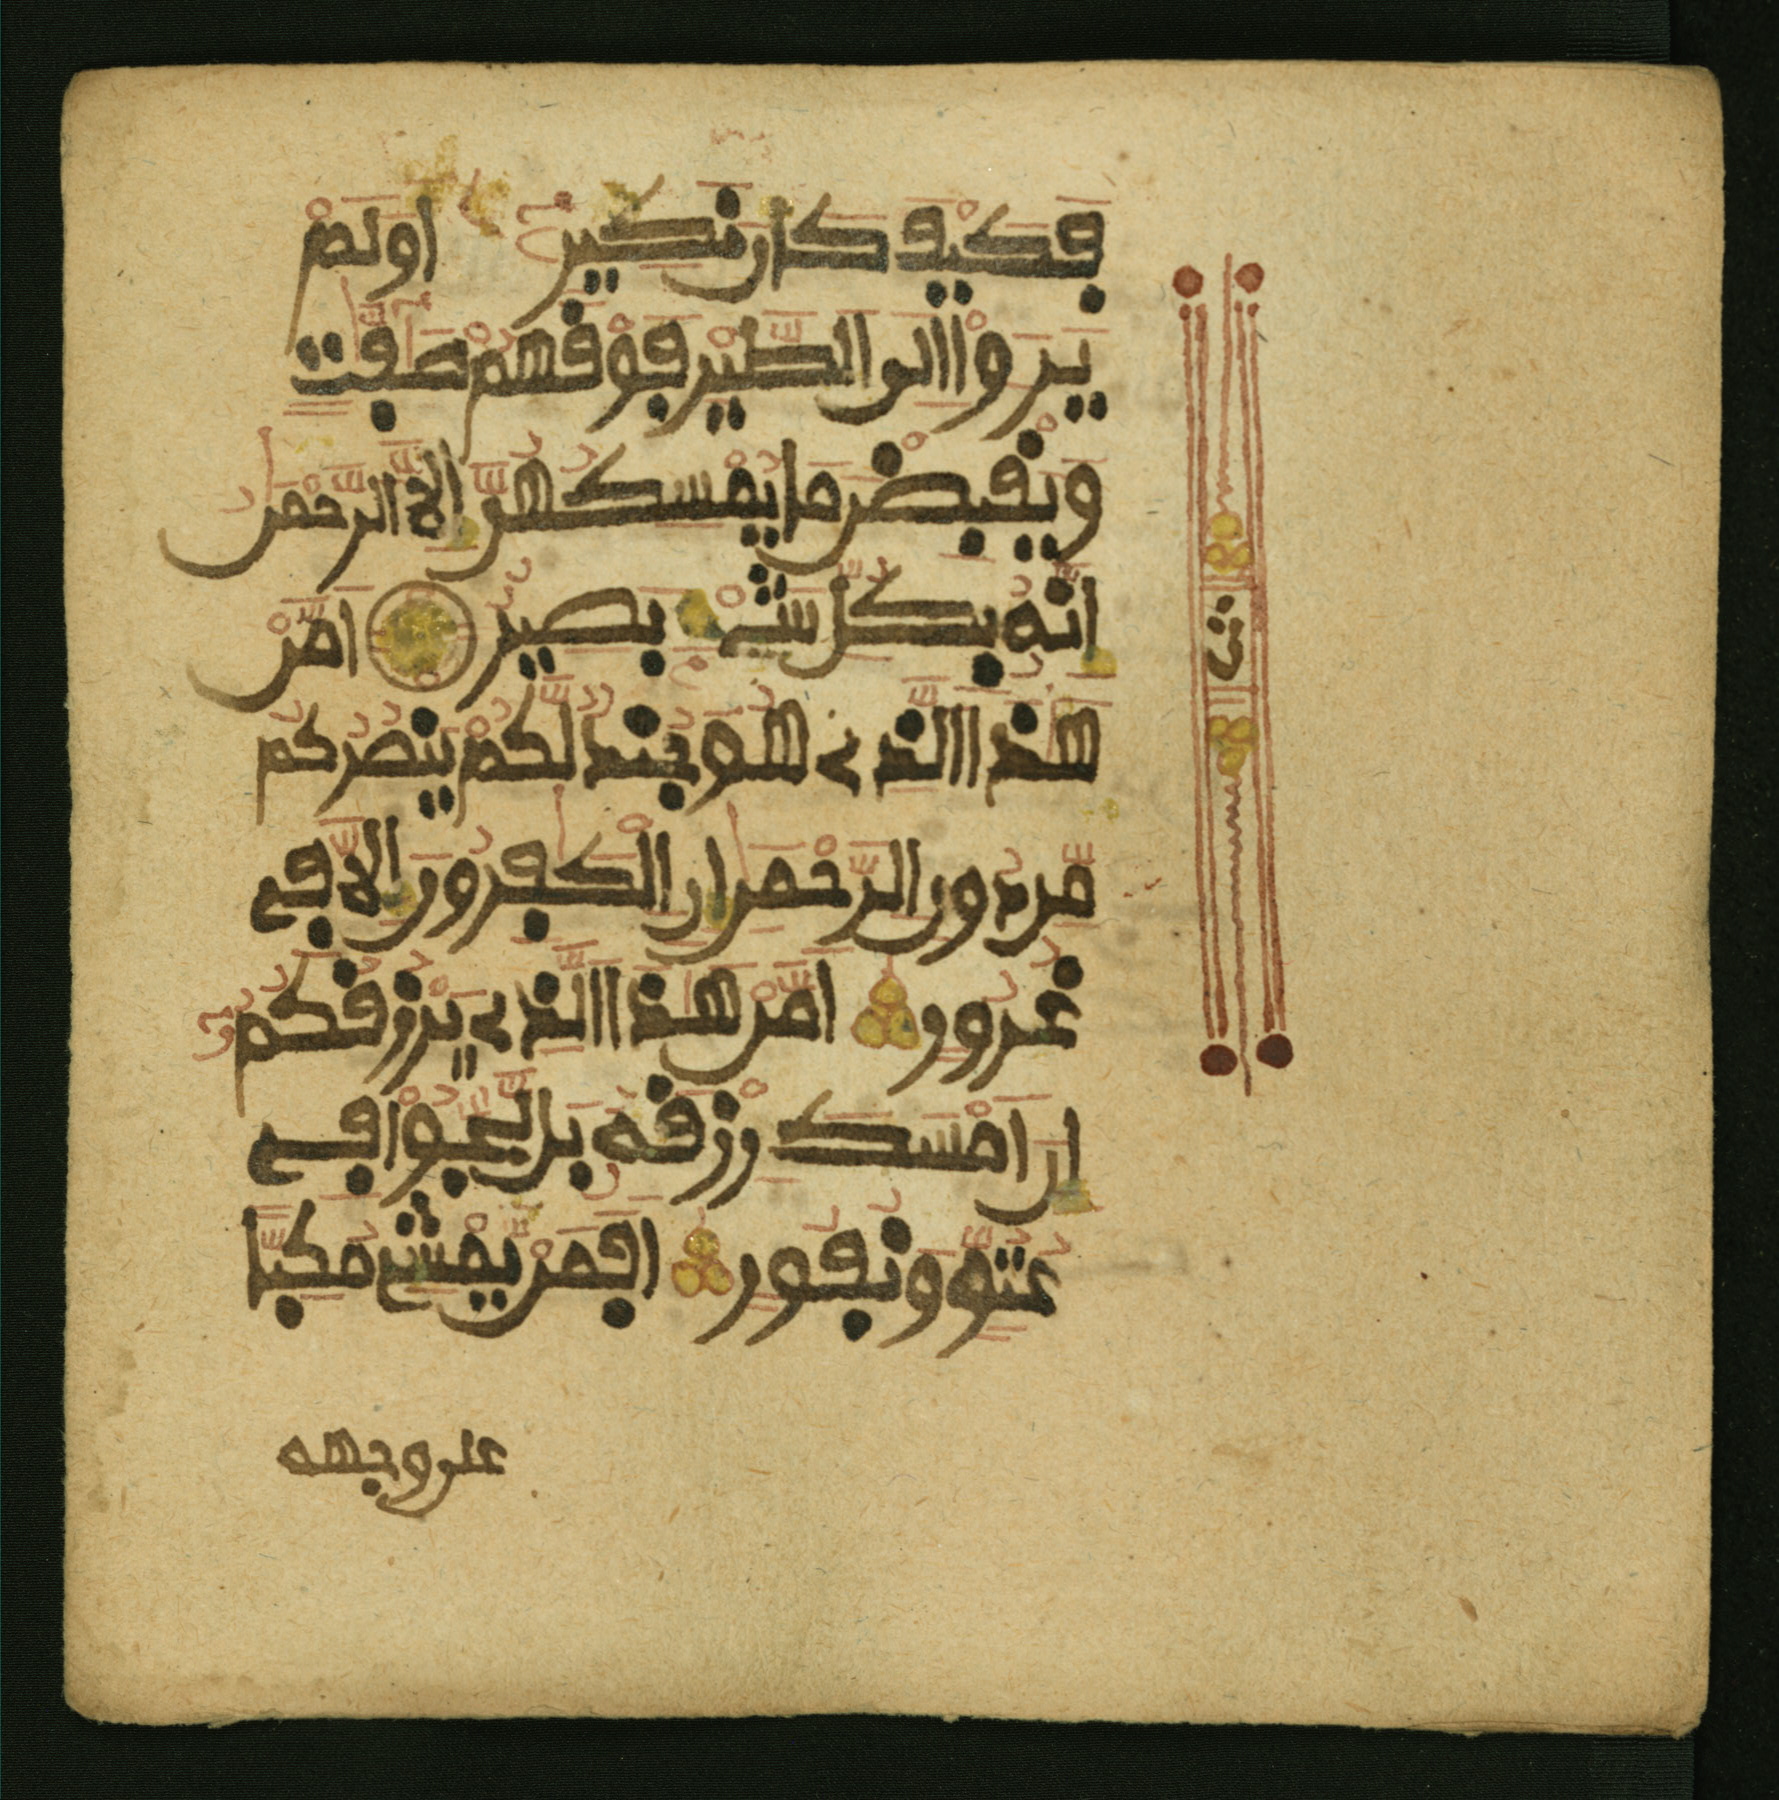 فكيف كان نكير اولم
يروا الى الطير فوقهم صفت
ويقبضن ما يمسكهن الا الرحمن
انه بكل شيء بصير امن
هذا الذي هو جند لكم ينصركم
من دون الرحمن ان الكفرون الا في
غرور امن هذا الذي يرزقكم
ان امسك رزقه بل لجوا في
عتو ونفور افمن يمشي مكبا
على وجهه